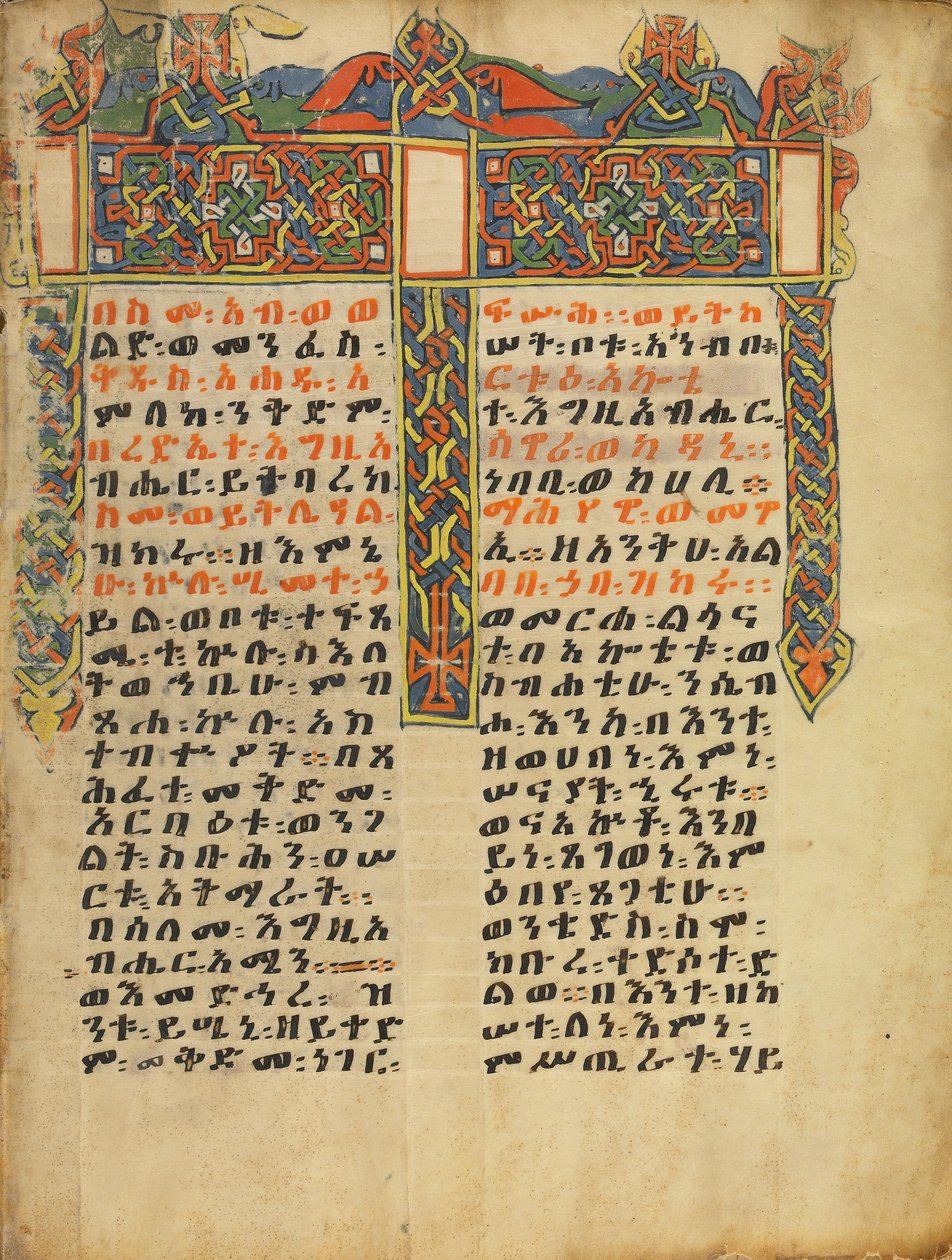 በስመ፡አብ፡ወወ
ልድ፡ወመንፈስ፡
ቅዱስ፡አሐዱ፡አ
ምላክ፡ንቅድም፡
በረድኤተ፡እግዚአ
ብሔር፡ይትባረክ
ስሙ፡ወይትሌዓል፡
ዝክሩ፡፡ዘእምኔ
ሁ፡ኵሉ፡ሢመተ፡ኃ
ይል፡ወቦቱ፡ተፍጻ
ሜተ፡ኵሉ፡ስእለ
ት፡ወኀቤሁ፡ምብ
ጻሐ፡ኵሉ፡አስ
ተብቍዖት፡፡በጻ
ሕፈተ፡መቅድመ፡
አርባዕቱ፡ወንጌ
ልት፡ስቡሕን፡ዐሠ
ርቱ፡አትማራት፡፡
በሰላመ፡እግዚአ
ብሔር፡አሜን፡፡
ወእመድኅረ፡ዝ
ንቱ፡ይሤኒ፡ዘይቀድ
ም፡መቅድመ፡ነገር፡
ፍሡሕ፡፡ወይትከ
ሠት፡ቦቱ፡አንብቦ፡
ርቱዕ፡አኰቴ
ተ፡እግዚአብሔር፡
ሰዋሪ፡ወከዳኒ፡፡
ነባቢ፡ወከሃሊ፡፡
ማሕየዊ፡ወመዋ
ኢ፡፡ዘአንትሀ፡አል
ባበ፡ኃበ፡ዝክሩ፡፡
ወመርሐ፡ልሳና
ተ፡ባአኰቴቱ፡ወ
ስብሐቲሁ፡ንሴብ
ሐ፡እንከ፡በእንተ፡
ዘወሀበነ፡እምነ፡
ሠናያት፡ኂሩቱ፡፡
ወናአኵቶ፡እንበ
ይነ፡ጸገወነ፡እም
ዕበየ፡ጸጋቲሁ፡፡
ወንቴድስ፡ስሞ፡
ክቡረ፡ተድላተ፡ድ
ልወ፡፡በእንተ፡ዘከ
ሠተ፡ለነ፡እምነ፡
ምሥጢራተ፡ሃይ